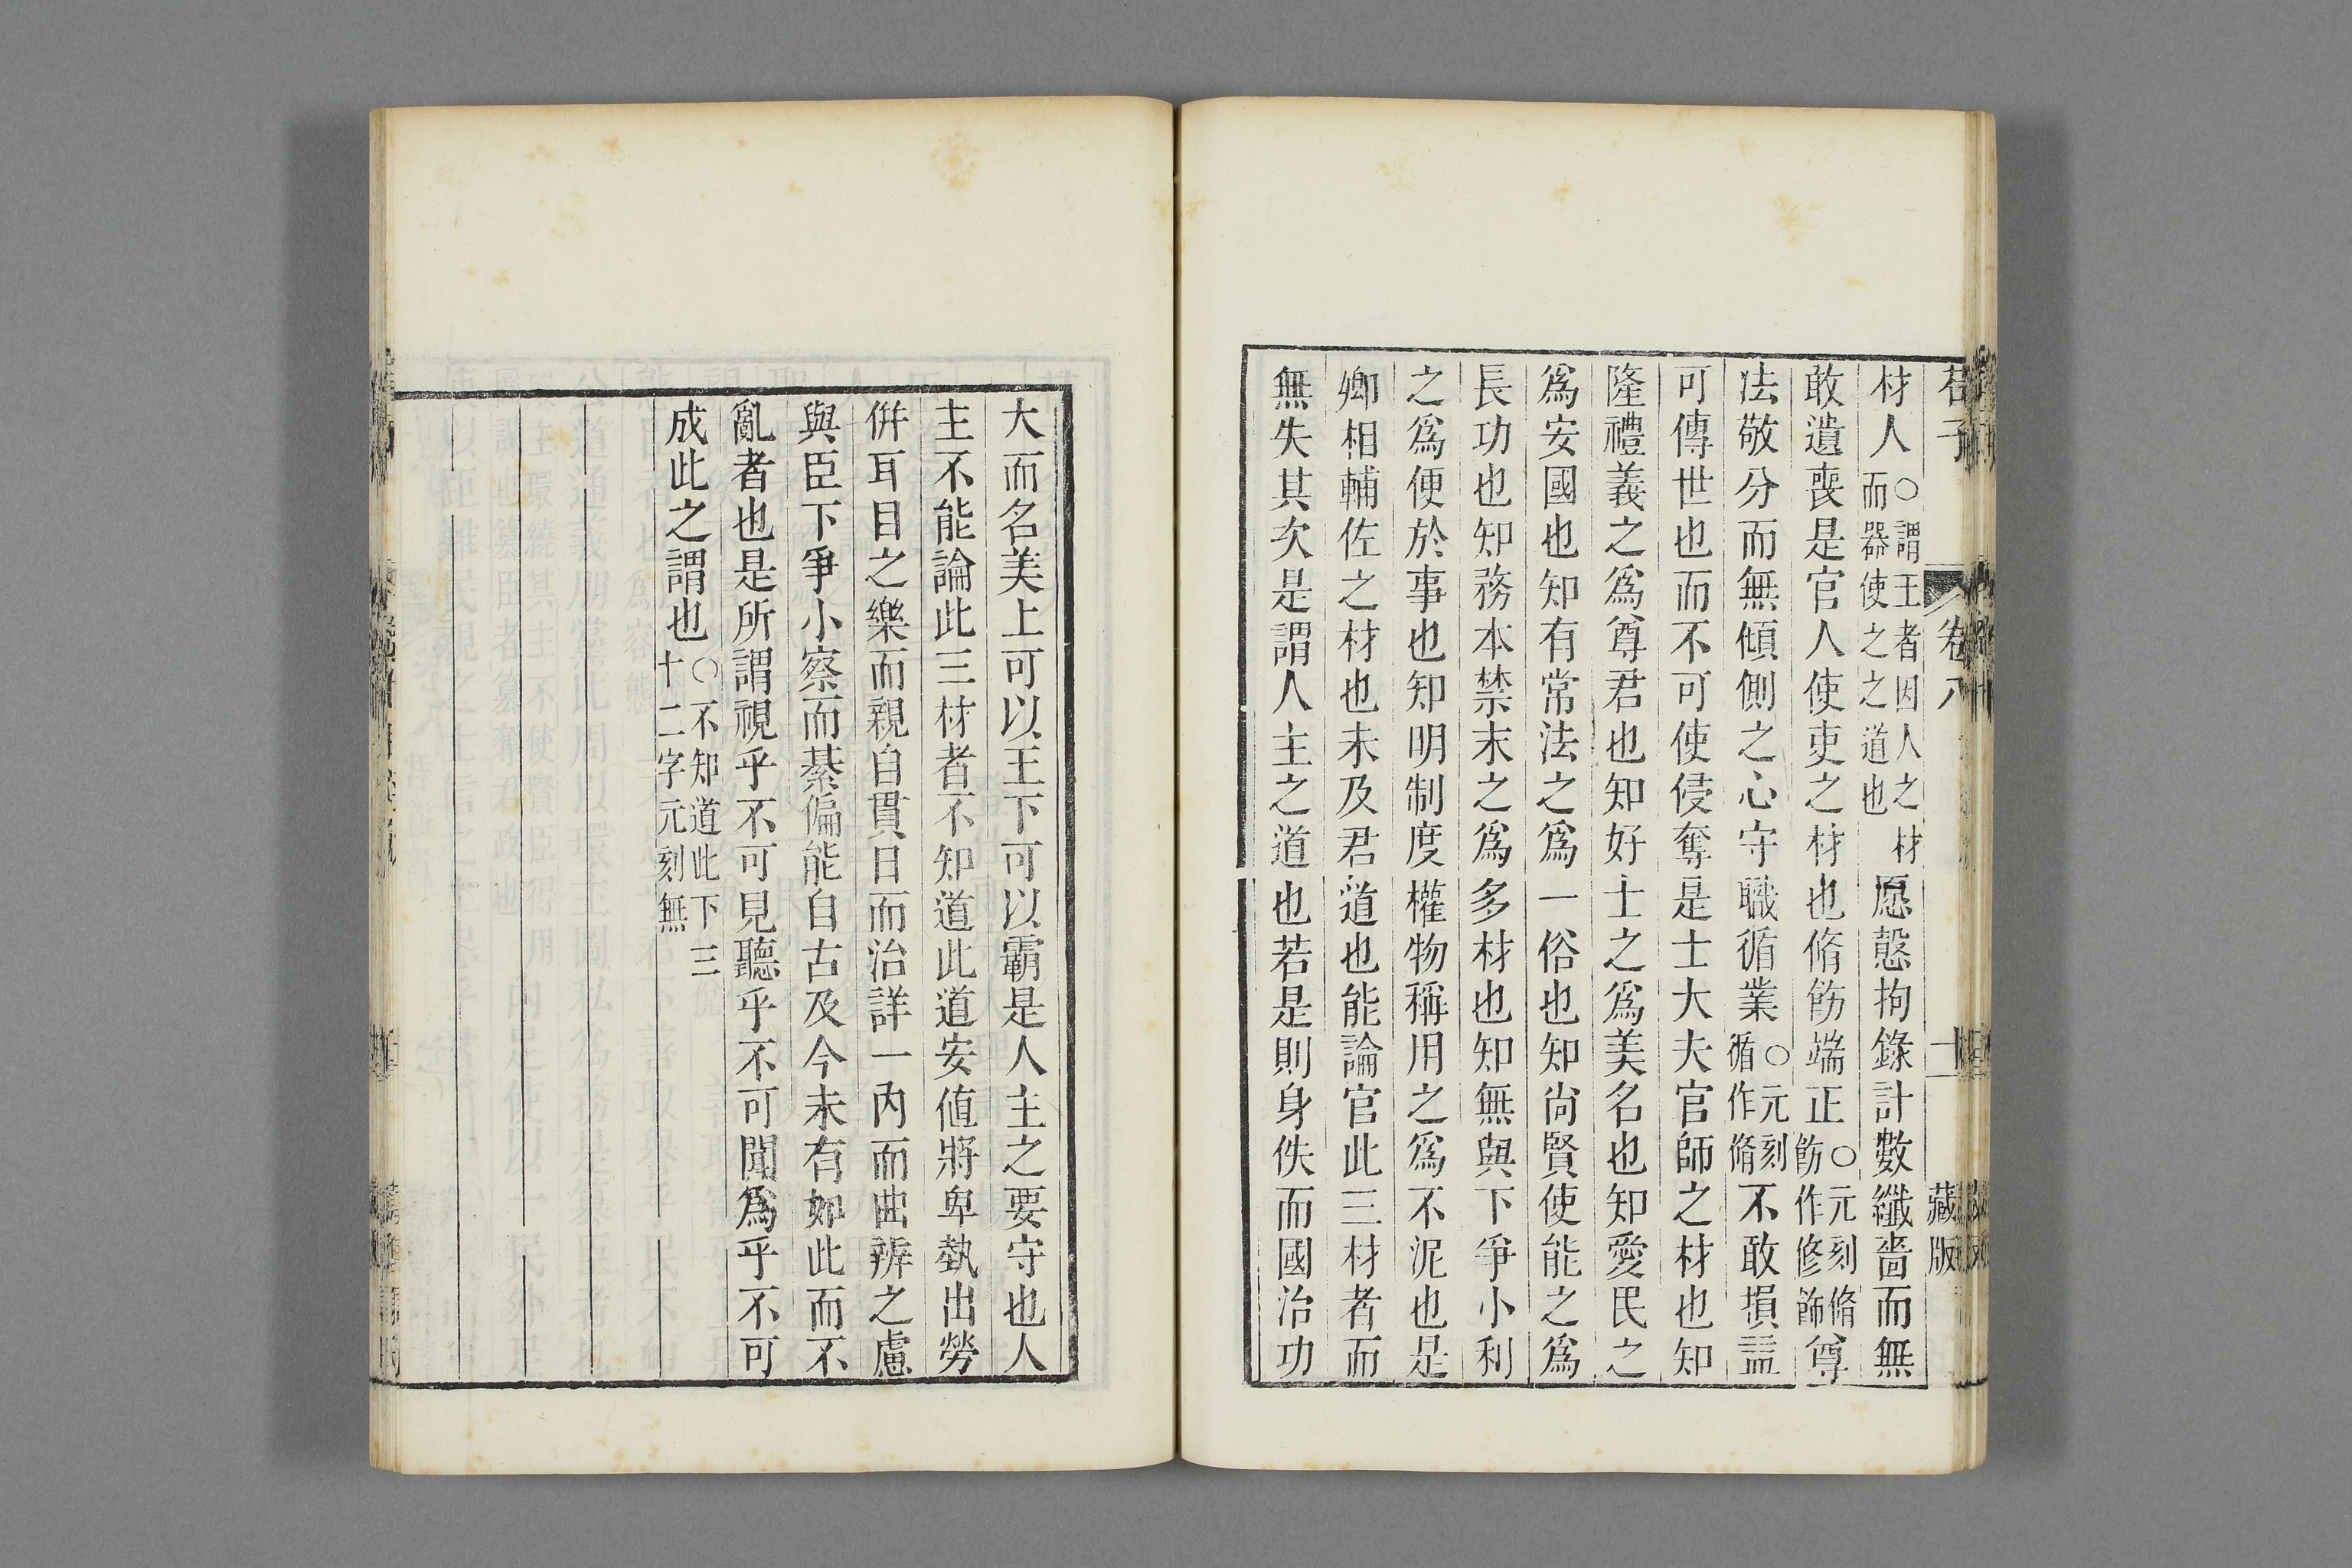 荀子 卷八 十 藏版
材人○謂王者因人之材而器使之之道也愿愨拘錄計數纖嗇而無
敢遺喪是官人使吏之材也脩飭端正○元刻脩飭作修飾尊
法敬分而無傾側之心守職循業○元刻循作脩不敢損益
可傳世也而不可使侵奪是士大夫官師之材也知
隆禮義之爲尊君也知好士之爲美名也知愛民之
爲安國也知有常法之爲一俗也知尚賢使能之爲
長功也知務本禁末之爲多材也知無與下爭小利
之爲便於事也知明制度權物稱用之爲不泥也是
卿相輔佐之材也未及君道也能論官此三材者而
無失其次是謂人主之道也若是則身佚而國治功
大而名美上可以王下可以霸是人主之要守也人
主不能論此三材者不知道此道安値將卑埶出勞
併耳目之樂而親自貫日而治詳一內而曲辨之慮
與臣下爭小察而綦偏能自古及今未有如此而不
亂者也是所謂視乎不可見聽乎不可聞爲乎不可
成此之謂也○不知道此下三十二字元刻無